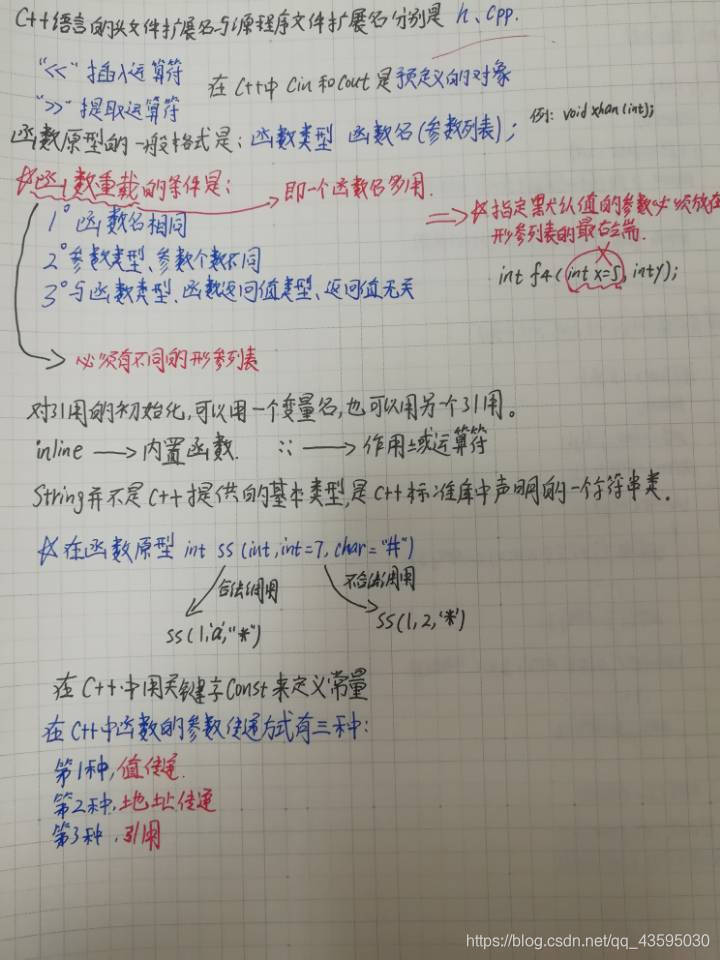 C++语言的头文件扩展名与源程序文件扩展名分别是 h、cpp.
"<<" 插入运算符
在C++中 Cin 和 Cout 是预定义的对象
">>" 提取运算符
函数原型的一般格式是: 函数类型 函数名(参数列表); 例: void xhan(int);
☆函数重载的条件是: 即一个函数名多用.
1° 函数名相同
2° 参数类型、参数个数不同
3° 与函数类型、函数返回值类型、返回值无关
⇒ ☆指定默认值的参数必须放在
形参列表的最右端.
int f4(int x=5, int y);
必须有不同的形参列表
对引用的初始化,可以用一个变量名,也可以用另一个引用。
inline → 内置函数. :: → 作用域运算符
String 并不是C++提供的基本类型,是C++标准库中声明的一个字符串类.
☆在函数原型 int ss(int,int=7,char="#")
合法调用 不合法调用
ss(1,'a',"*") ss(1,2,'*')
在C++中用关键字Const来定义常量
在C++中函数的参数传递方式有三种:
第1种,值传递.
第2种.地址传递
第3种.引用
https://blog.csdn.net/qq_43595030